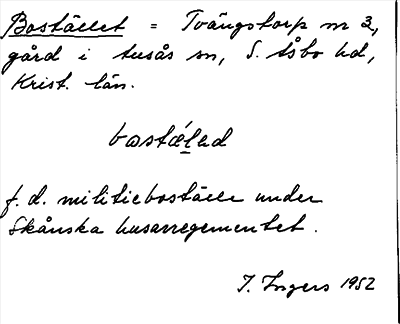 Bostället = Tvängstorp nr 3,
gård i Ausås sn, S. Åsbo hd,
Krist. län.
bostä́led
f.d. militieboställe under
Skånska husarregementet.
I. Ingers 1952